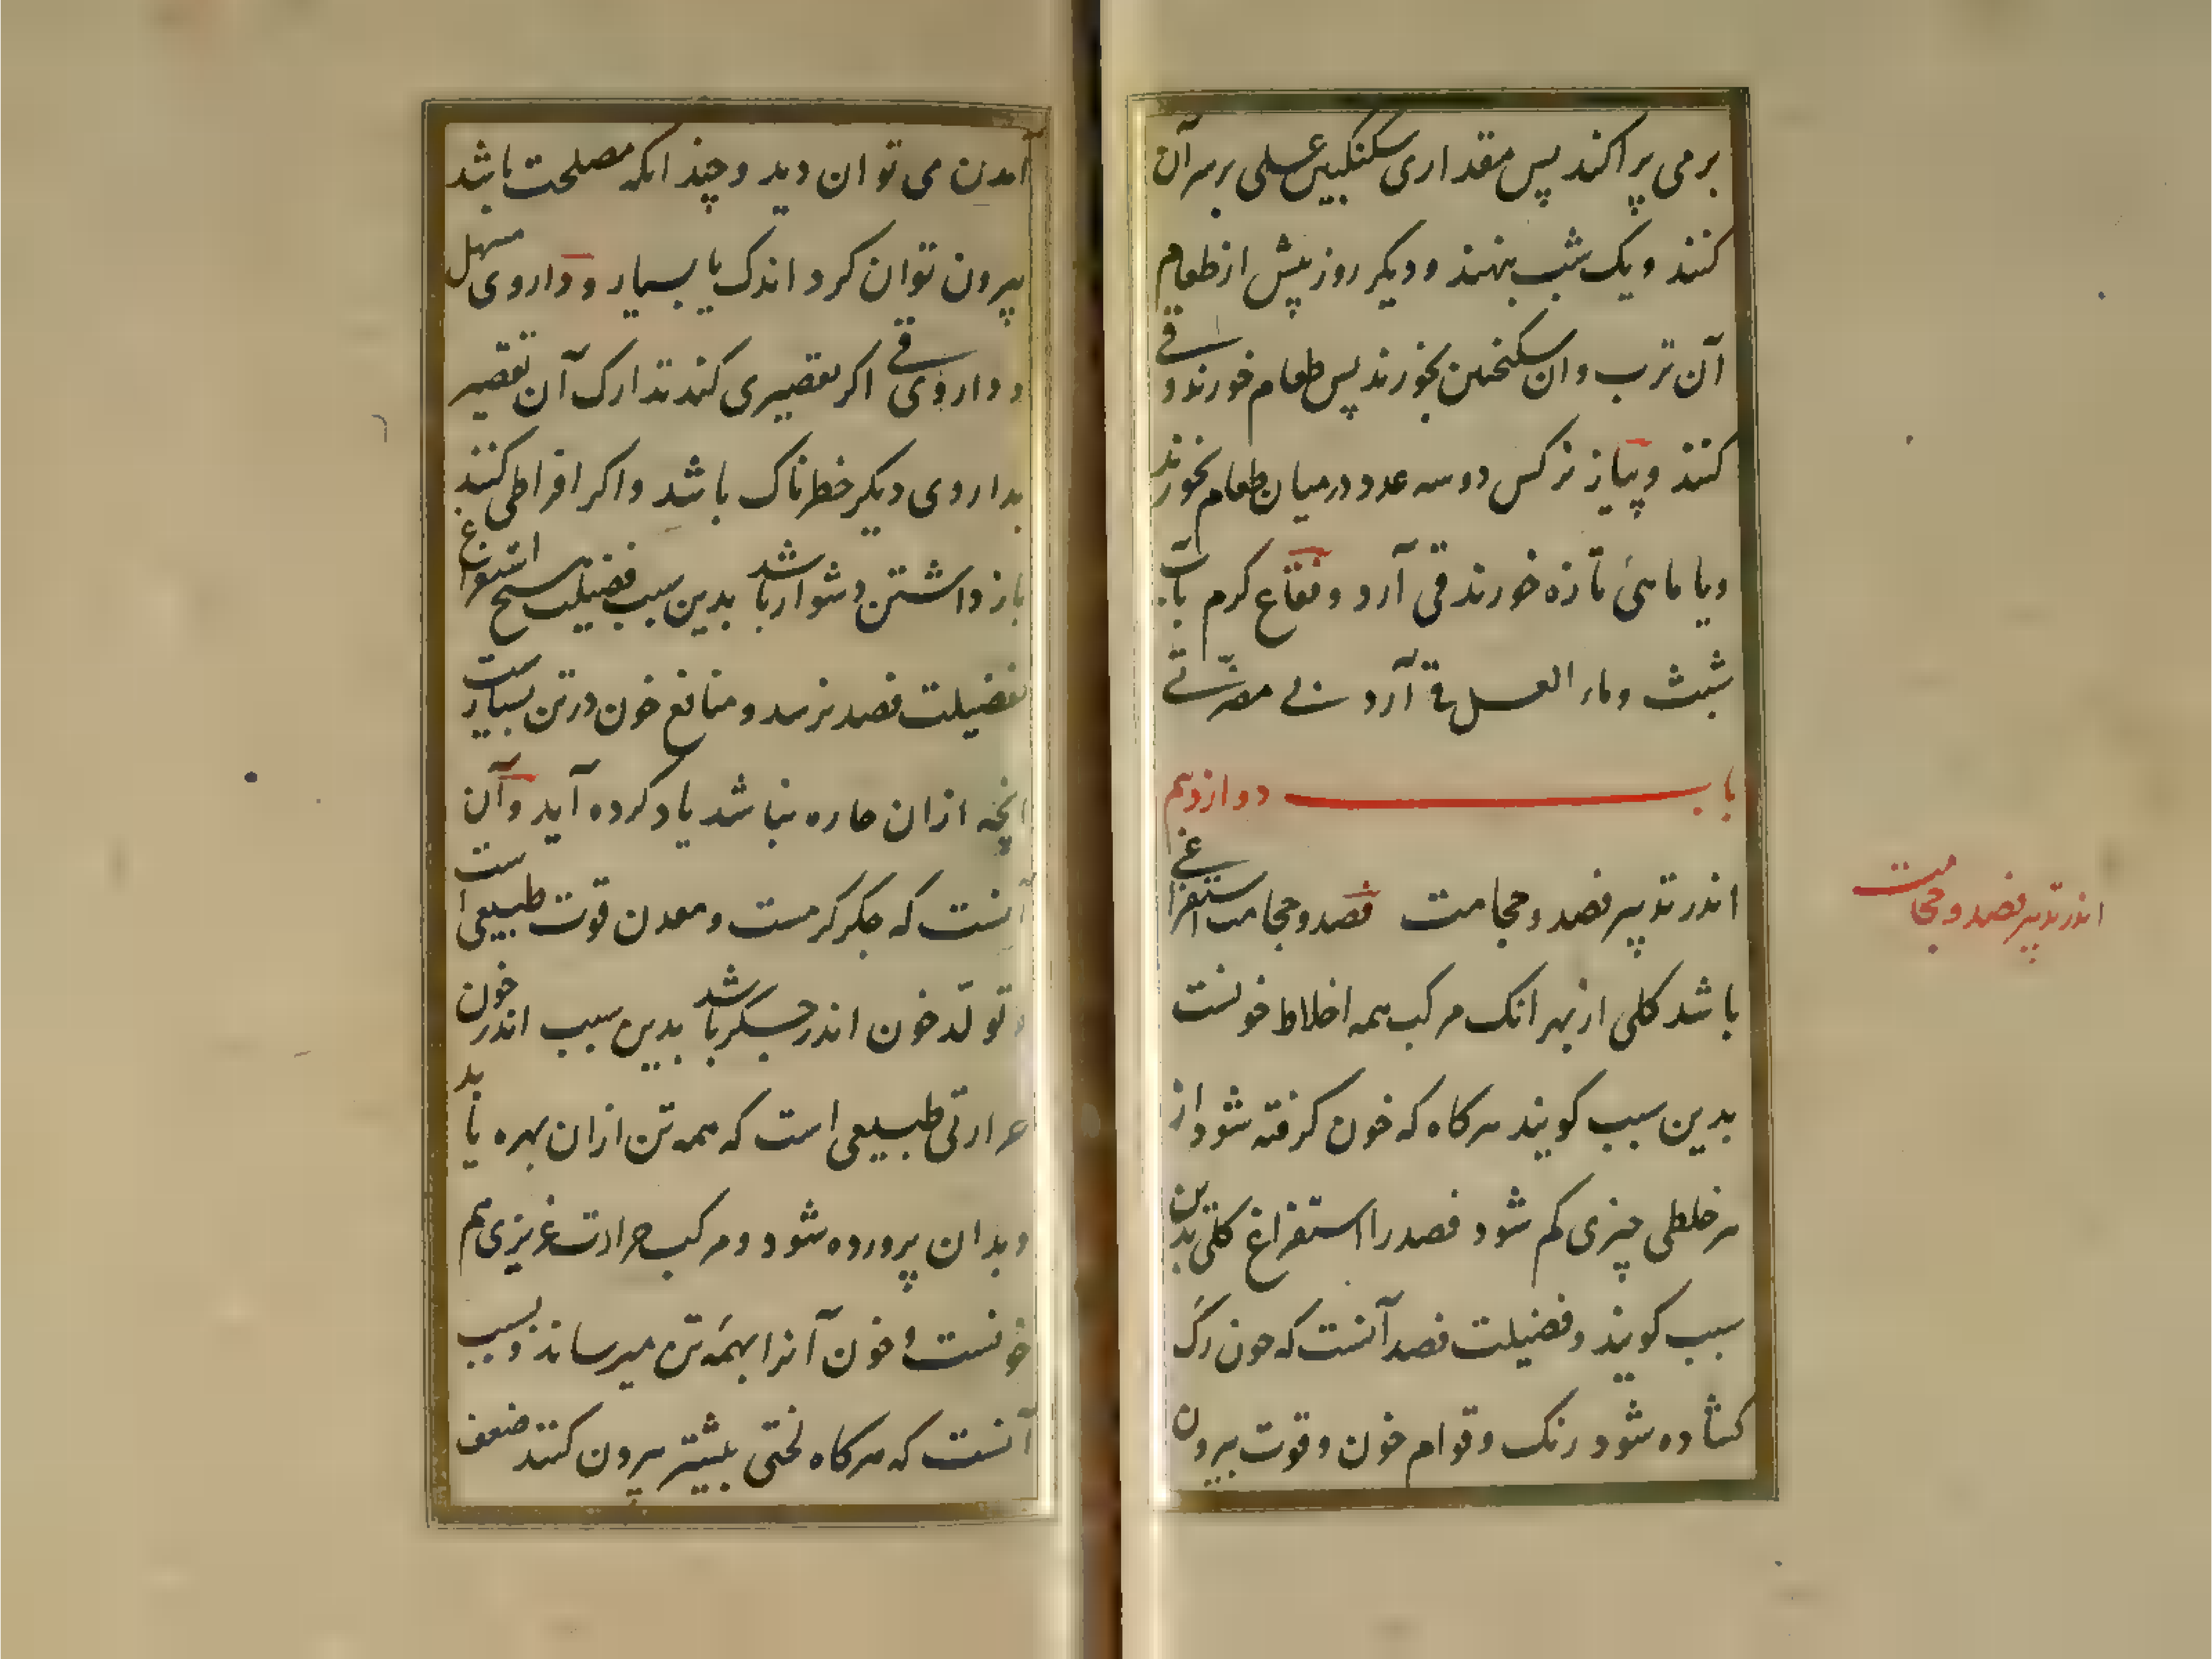 بر می پراکند پس مقداری سکنکبین عسلی بر سر آن
کنند و یک شب بنهند و دیکر روز پیش از طعام
آن ترب و ان سکنجبین بخورند پس طعام خورند و قی
کنند و پیاز نرکس دو سه عدد در میان طعام بخورند
و یا ماهئ تازه خورند قی آرد و فقاع کرم با آب
شبث و ماء العسل قی آرد بی مضرّتی
باب دوازدهم
اندر تدبیر فصد و حجامت فصد و حجامت استفراغی
باشد کلی از بهر انک مرکب همه اخلاط خونست
بدین سبب کویند هرکاه که خون کرفته شود از
هر خلطی چیزی کم شود فصد را استفراغ کلی بدین
سبب کویند و فضیلت فصد آنست که چون رک
کشاده شود رنک و قوام خون و قوت بیرون
اندر تدبیر فصد و حجامت
آمدن می توان دید و چندانکه مصلحت باشد
بیرون توان کرد اندک یا بسیار و داروی مسهل
و داروی قی اکر تقصیری کند تدارک آن تقصیر
بداروی دیکر خطرناک باشد و اکر افراطی کنند
باز داشتن دشوار باشد بدین سبب فضیلت هیچ استفراغ
بفضیلت فصد نرسد و منافع خون در تن بسیارست
انچه ازان چاره نباشد یاد کرده آید و آن
آنست که جکر کرمست و معدن قوت طبیعی است
و تولّد خون اندر جکر باشد بدین سبب اندر خون
حرارتی طبیعی است که همه تن ازان بهره یابد
و بدان پرورده شود و مرکب حرارت غریزی هم
خونست و خون آنرا بهمه تن میرساند و بسبب
آنست که هرکاه لختی بیشتر بیرون کنند ضعف